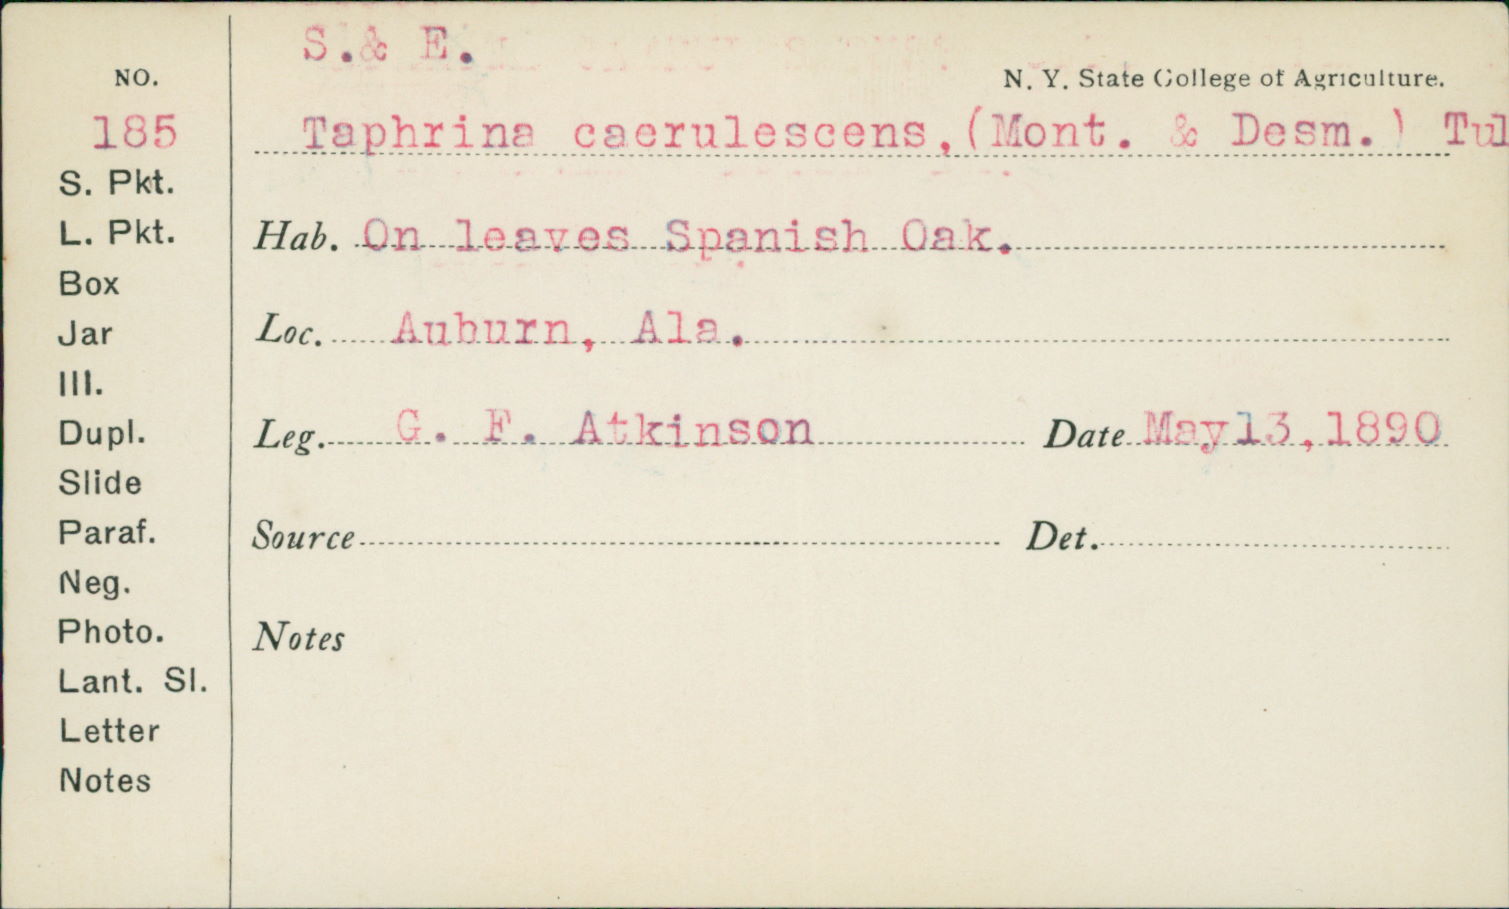 S.& E.
NO.
N. Y. State College of Agriculture.
185
Taphrina caerulescens,(Mont. & Desm.) Tul
S. Pkt.
L. Pkt.
Hab. On leaves Spanish Oak.
Box
Jar
Loc. Auburn, Ala.
Ill.
Dupl.
Leg. G. F. Atkinson Date May13,1890
Slide
Paraf.
Source Det.
Neg.
Photo.
Notes
Lant. Sl.
Letter
Notes